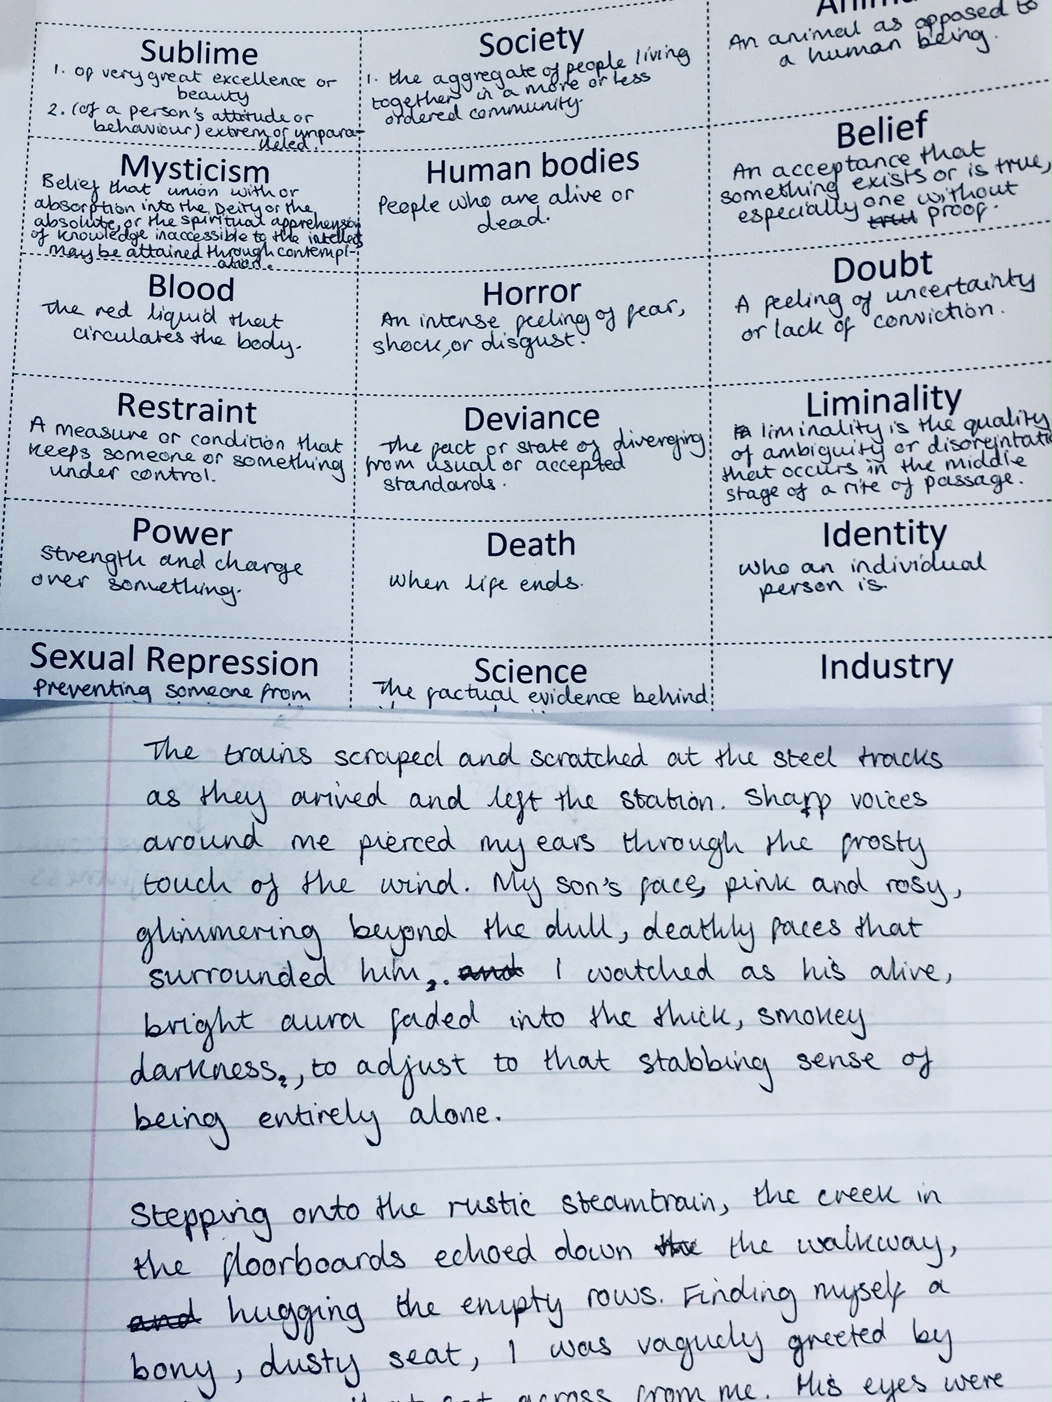 Sublime
1. of very great excellence or
beauty
2. (of a person's attitude or
behaviour) extrem or unpara-
lleled.
Society
1. the aggregate of people living
together in a more or less
ordered community.
An animal as opposed to
a human being.
Mysticism
Belief that union with or
absorption into the Deity or the
absolute, or the spiritual apprehension
of knowledge inaccessible to the intellect
may be attained through contempl-
ation.
Human bodies
People who are alive or
dead.
Belief
An acceptance that
something exists or is true,
especially one without
proof.
Blood
The red liquid that
circulates the body.
Horror
An intense feeling of fear,
shock, or disgust.
Doubt
A feeling of uncertainty
or lack of conviction.
Restraint
A measure or condition that
keeps someone or something
under control.
Deviance
The fact or state of diverging
from usual or accepted
standards.
Liminality
liminality is the quality
of ambiguity or
that occurs in the middle
stage of a rite of passage.
Power
Strength and charge
over something.
Death
When life ends.
Identity
Who an individual
person is.
Sexual Repression
Preventing someone from
Science
The factual evidence behind
Industry
The trains scraped and scratched at the steel tracks
as they arived and left the station. Sharp voices
around me pierced my ears through the frosty
touch of the wind. My son's face, pink and rosy,
glimmering beyond the dull, deathly faces that
surrounded him, and I watched as his alive,
bright aura faded into the thick, smokey
darkness, to adjust to that stabbing sense of
being entirely alone.
Stepping onto the rustic steamtrain, the creek in
the floorboards echoed down the the walkway,
and hugging the empty rows. Finding myself a
bony, dusty seat, I was vaguely greeted by
across from me. His eyes were